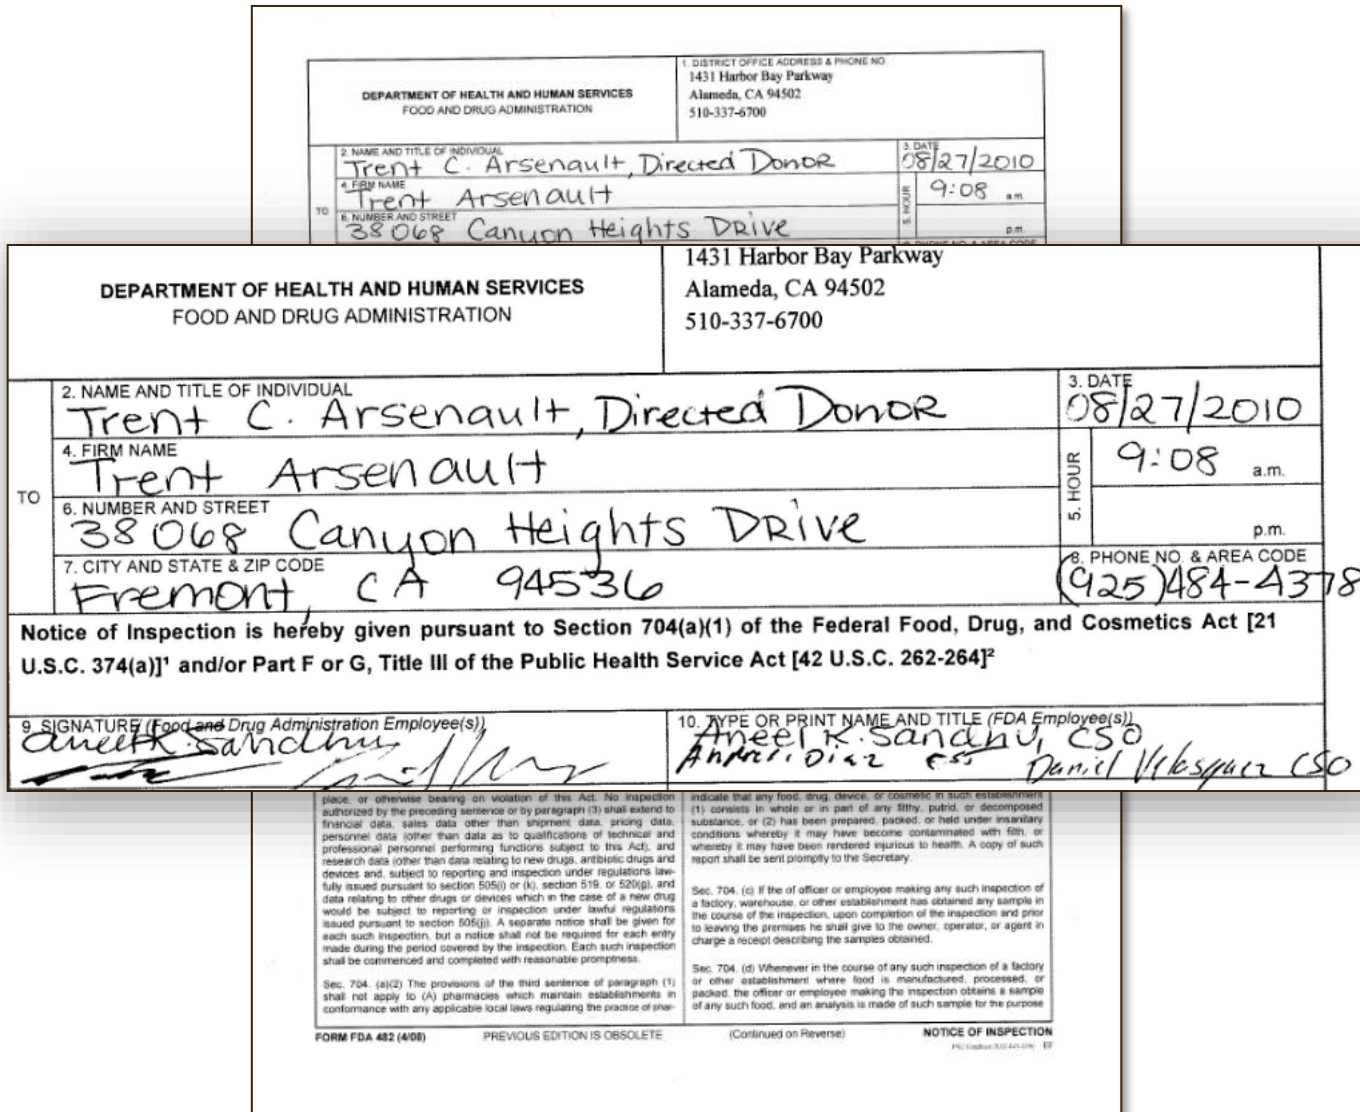 1. DISTRICT OFFICE ADDRESS & PHONE NO.
1431 Harbor Bay Parkway
Alameda, CA 94502
510-337-6700
DEPARTMENT OF HEALTH AND HUMAN SERVICES
FOOD AND DRUG ADMINISTRATION
2. NAME AND TITLE OF INDIVIDUAL
Trent C. Arsenault, Directed Donor
3. DATE
08/27/2010
4. FIRM NAME
Trent Arsenault
5. HOUR
9:08 a.m.
p.m.
TO
6. NUMBER AND STREET
38068 Canyon Heights Drive
1431 Harbor Bay Parkway
Alameda, CA 94502
510-337-6700
DEPARTMENT OF HEALTH AND HUMAN SERVICES
FOOD AND DRUG ADMINISTRATION
2. NAME AND TITLE OF INDIVIDUAL
Trent C. Arsenault, Directed Donor
3. DATE
08/27/2010
4. FIRM NAME
Trent Arsenault
5. HOUR
9:08 a.m.
p.m.
TO
6. NUMBER AND STREET
38068 Canyon Heights Drive
7. CITY AND STATE & ZIP CODE
Fremont, CA 94536
8. PHONE NO. & AREA CODE
(925)484-4378
Notice of Inspection is hereby given pursuant to Section 704(a)(1) of the Federal Food, Drug, and Cosmetics Act [21
U.S.C. 374(a)]¹ and/or Part F or G, Title III of the Public Health Service Act [42 U.S.C. 262-264]²
9. SIGNATURE (Food and Drug Administration Employee(s))
Aneel K. Sandhu
10. TYPE OR PRINT NAME AND TITLE (FDA Employee(s))
Aneel K. Sandhu, CSO
Andres Diaz
Daniel Velasquez CSO
place, or otherwise bearing on violation of this Act. No inspection
authorized by the preceding sentence or by paragraph (3) shall extend to
financial data, sales data other than shipment data, pricing data,
personnel data (other than data as to qualifications of technical and
professional personnel performing functions subject to this Act), and
research data (other than data relating to new drugs, antibiotic drugs and
devices and, subject to reporting and inspection under regulations law-
fully issued pursuant to section 505(i) or (k), section 519, or 520(g), and
data relating to other drugs or devices which in the case of a new drug
would be subject to reporting or inspection under lawful regulations
issued pursuant to section 505(j)). A separate notice shall be given for
each such inspection, but a notice shall not be required for each entry
made during the period covered by the inspection. Each such inspection
shall be commenced and completed with reasonable promptness.
Sec. 704. (a)(2) The provisions of the third sentence of paragraph (1)
shall not apply to (A) pharmacies which maintain establishments in
conformance with any applicable local laws regulating the practice of phar-
indicate that any food, drug, device, or cosmetic in such establishment
(1) consists in whole or in part of any filthy, putrid, or decomposed
substance, or (2) has been prepared, packed, or held under insanitary
conditions whereby it may have become contaminated with filth, or
whereby it may have been rendered injurious to health. A copy of such
report shall be sent promptly to the Secretary.
Sec. 704. (c) If the of officer or employee making any such inspection of
a factory, warehouse, or other establishment has obtained any sample in
the course of the inspection, upon completion of the inspection and prior
to leaving the premises he shall give to the owner, operator, or agent in
charge a receipt describing the samples obtained.
Sec. 704. (d) Whenever in the course of any such inspection of a factory
or other establishment where food is manufactured, processed, or
packed, the officer or employee making the inspection obtains a sample
of any such food, and an analysis is made of such sample for the purpose
FORM FDA 482 (4/08) PREVIOUS EDITION IS OBSOLETE (Continued on Reverse) NOTICE OF INSPECTION